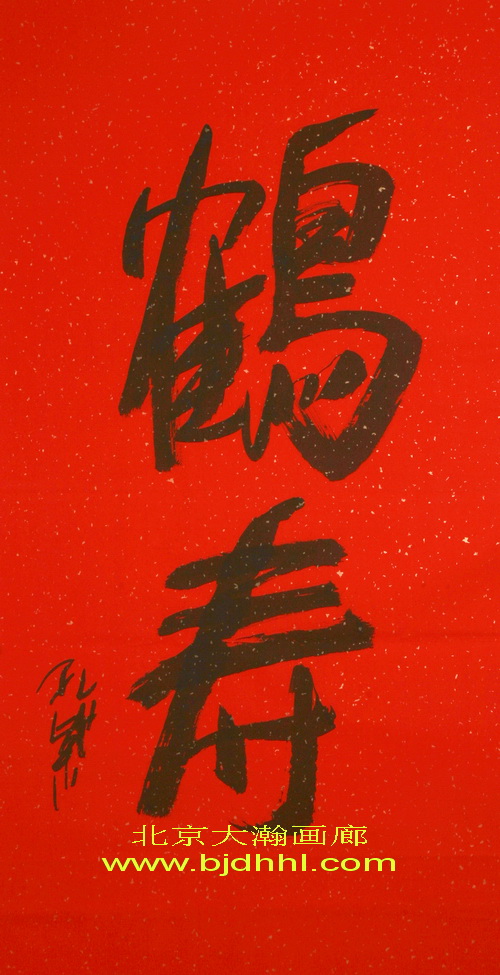 鹤寿
北京大瀚画廊
www.bjdhhl.com